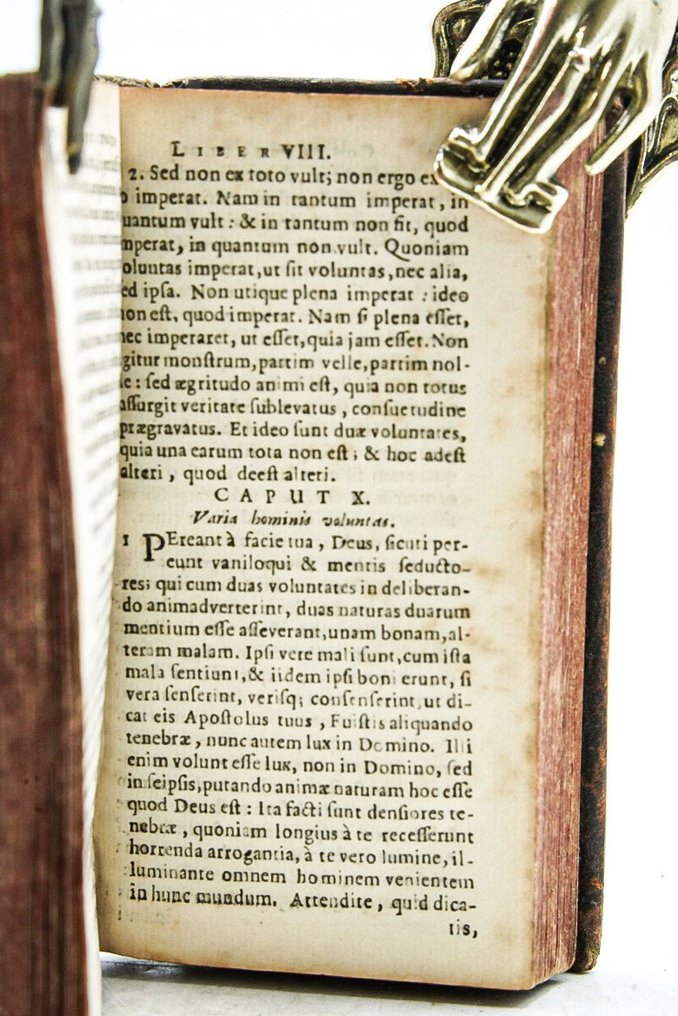 LIBER VIII.
2. Sed non ex toto vult; non ergo ex
o imperat. Nam in tantum imperat, in
uantum vult : & in tantum non fit, quod
mperat, in quantum non vult. Quoniam
oluntas imperat, ut ſit voluntas, nec alia,
ed ipſa. Non utique plena imperat : ideo
non eſt, quod imperat. Nam ſi plena eſſet,
nec imperaret, ut eſſet, quia jam eſſet. Non
gitur monſtrum, partim velle, partim nol-
le : ſed ægritudo animi eſt, quia non totus
aſſurgit veritate ſublevatus, conſuetudine
prægravatus. Et ideo ſunt duæ voluntates,
quia una earum tota non eſt ; & hoc adeſt
alteri, quod deeſt alteri.
CAPUT X.
Varia hominis voluntas.
1 PEreant à facie tua, Deus, ſicuti per-
eunt vaniloqui & mentis ſeducto-
res; qui cum duas voluntates in deliberan-
do animadverterint, duas naturas duarum
mentium eſſe aſſeverant, unam bonam, al-
teram malam. Ipſi vere mali ſunt, cum iſta
mala ſentiunt, & iidem ipſi boni erunt, ſi
vera ſenſerint, verisq; conſenſerint, ut di-
cat eis Apoſtolus tuus, Fuiſtis aliquando
tenebræ, nunc autem lux in Domino. Illi
enim volunt eſſe lux, non in Domino, ſed
in ſeipſis, putando animæ naturam hoc eſſe
quod Deus eſt : Ita facti ſunt denſiores te-
nebræ, quoniam longius à te receſſerunt
horrenda arrogantia, à te vero lumine, il-
luminante omnem hominem venientem
in hunc mundum. Attendite, quid dica-
tis,